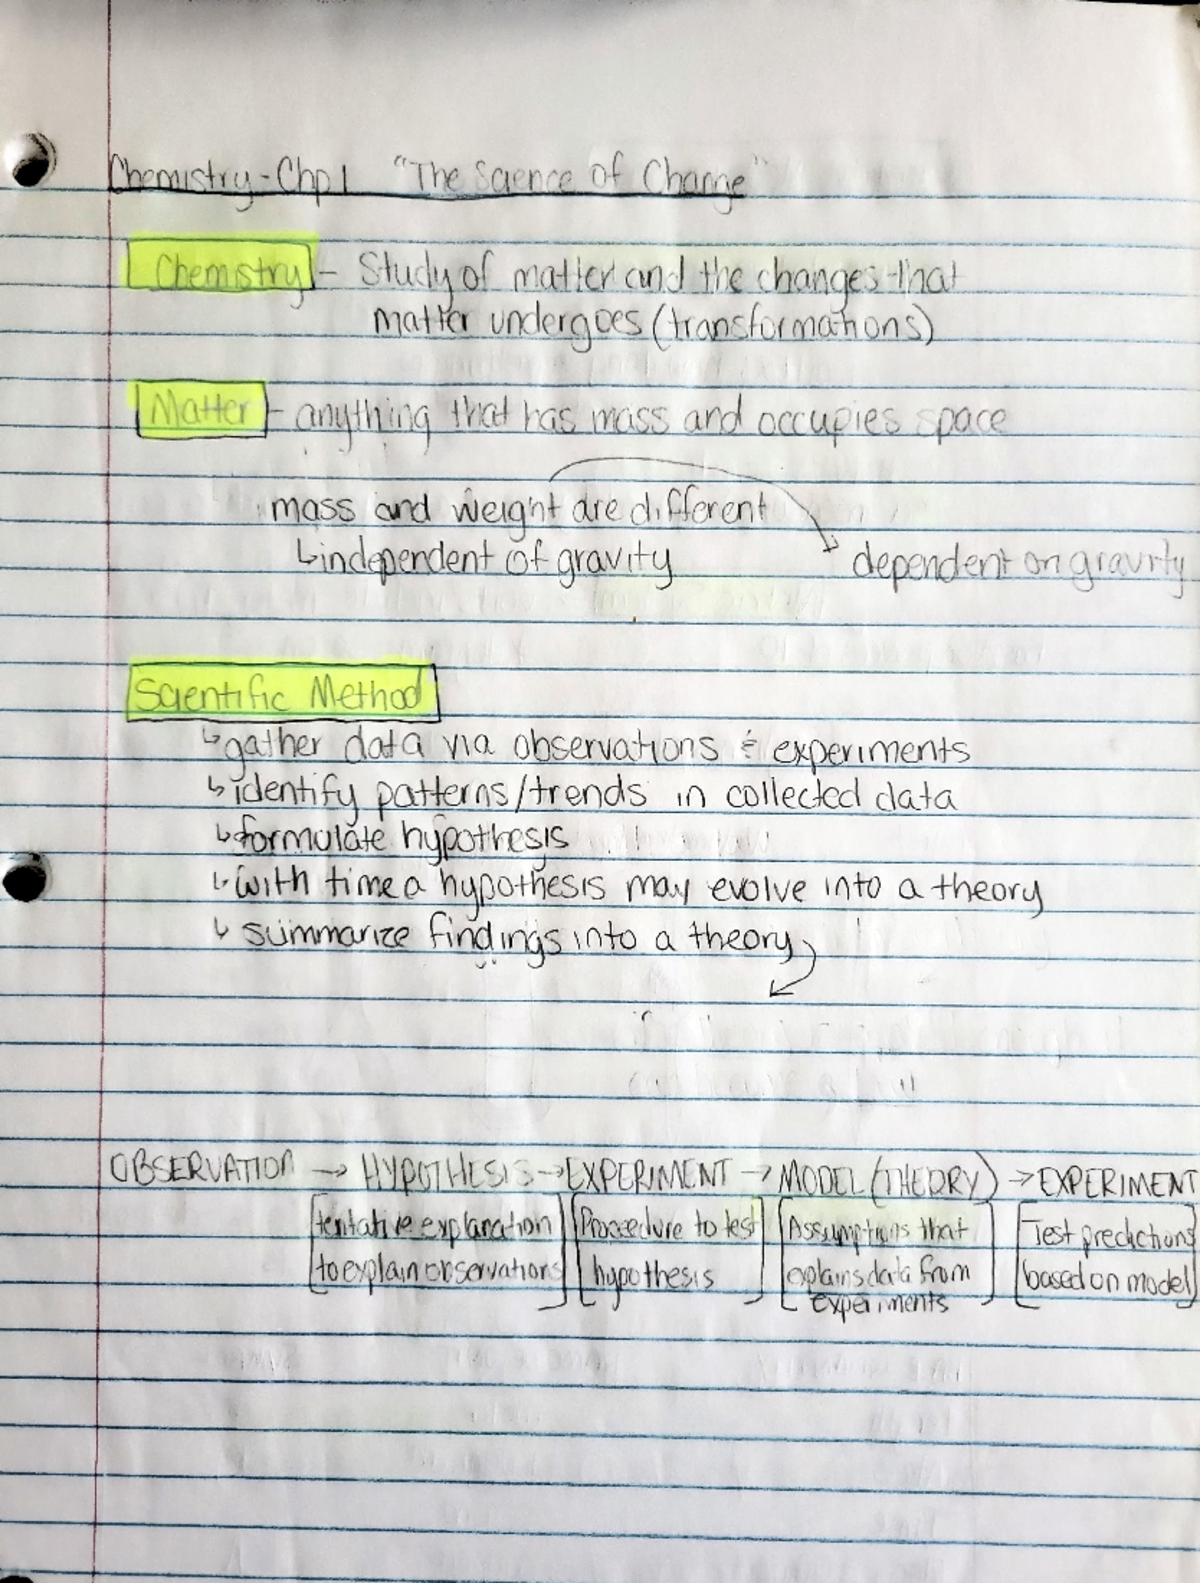 Chemistry - Chp 1 "The Science of Change"
Chemistry - Study of matter and the changes that
matter undergoes (transformations)
Matter - anything that has mass and occupies space
mass and weight are different
↳independent of gravity dependent on gravity
Scientific Method
↳gather data via observations & experiments
↳identify patterns/trends in collected data
↳formulate hypothesis
↳with time a hypothesis may evolve into a theory
↳summarize findings into a theory
OBSERVATION → HYPOTHESIS → EXPERIMENT → MODEL (THEORY) → EXPERIMENT
[tentative explanation
to explain observations]
[Procedure to test
hypothesis]
[Assumptions that
explains data from
experiments]
[Test predictions
based on model]